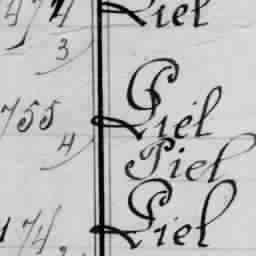 474 Piel
3
755 Piel
4
Piel
174 Piel